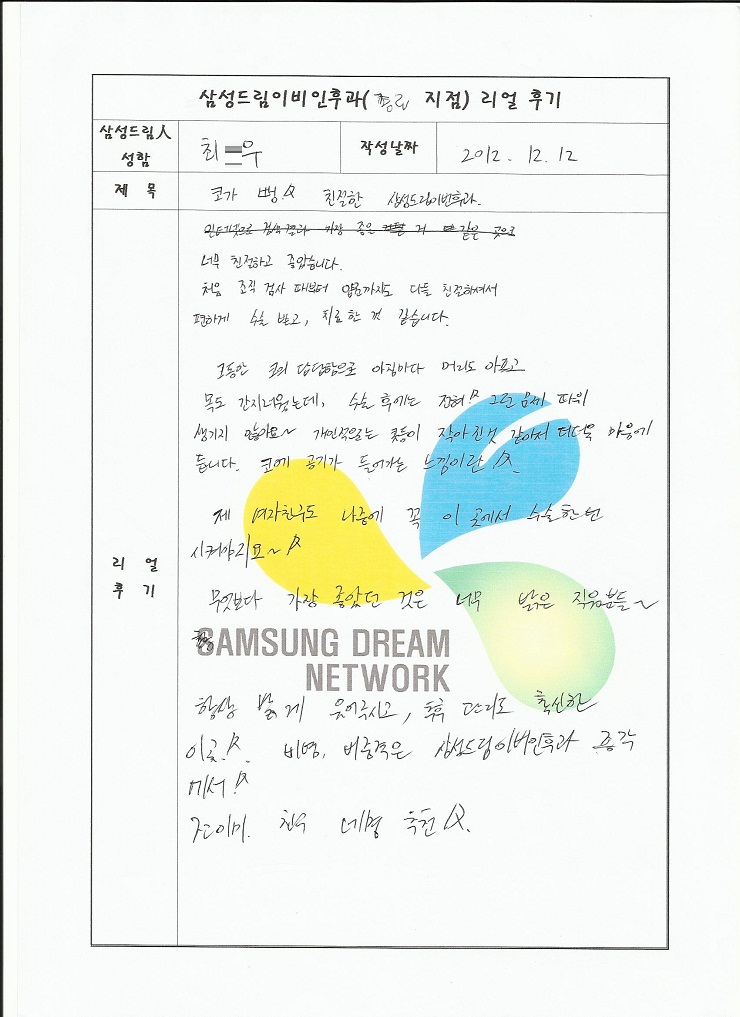 삼성드림이비인후과( 지점) 리얼 후기
삼성드림人 성함
최 우
작성날짜
2012. 12. 12
제 목
코가 뻥! 친절한 삼성드림이비인후과.
인터넷으로 검색결과 가장 좋은 거 같은 곳으로
너무 친절하고 좋았습니다.
처음 조직 검사 때부터 까지도 다들 친절하셔서
편하게 수술 받고, 치료한 것 같습니다.
그동안 코의 답답함으로 아침마다 머리도 아프고
목도 간지러웠는데, 수술 후에는 전혀!! 그런 문제 따위
생기지 않아요~ 개인적으로는 콧등이 작아진것 같아서 더더욱 마음에
듭니다. 코에 공기가 들어가는 느낌이란!!
제 여자친구도 나중에 꼭 이 곳에서 수술한번
시켜야지요~!!
리 얼
후 기
무엇보다 가장 좋았던 것은 너무 밝은 직원분들~
SAMSUNG DREAM
NETWORK
항상 밝게 웃어주시고, 관리도 확실한
이곳!! 비염, 비중격은 삼성드림이비인후과 종각
에서!!
벌써 네명 추천!!